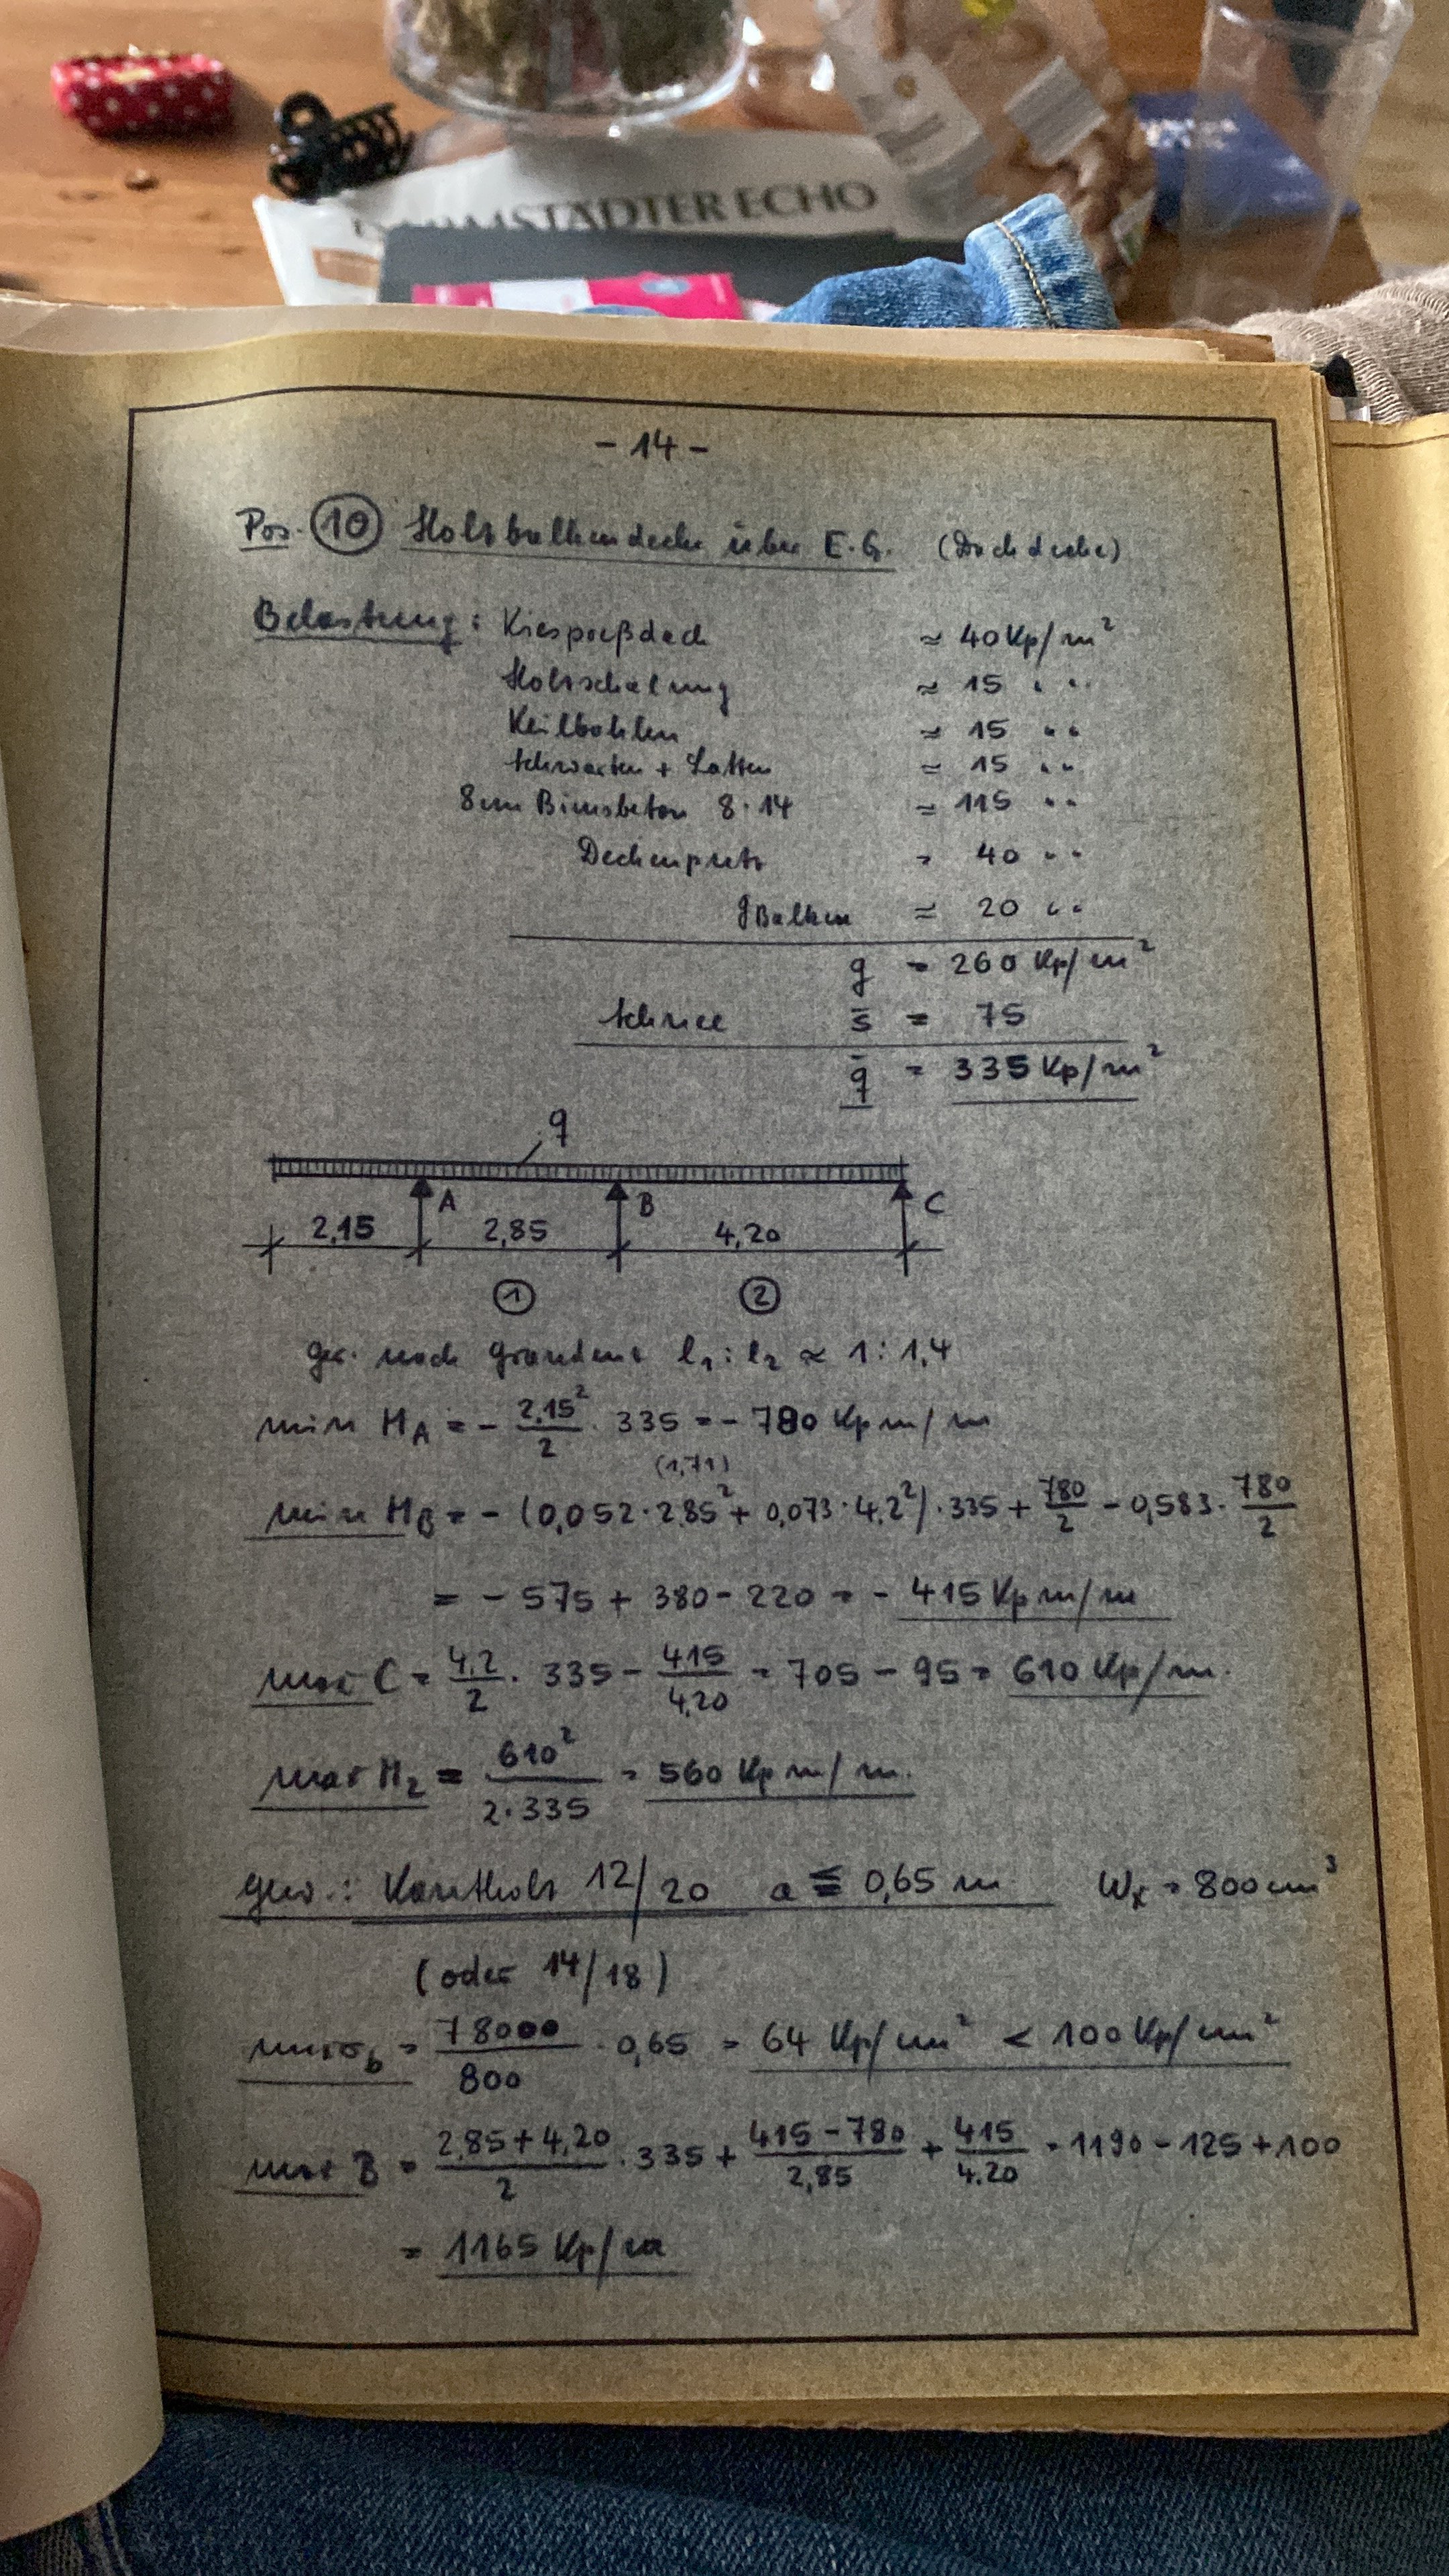 DARMSTÄDTER ECHO
- 14 -
Pos. 10 Holzbalkendecke über E.G. (Dachdecke)
Belastung: Kiespreßdach ≈ 40 Kp/m²
Holzschalung ≈ 15 " "
Keilbohlen ≈ 15 " "
Schwarten + Latten = 15 " "
8cm Bimsbeton 8·14 = 115 " "
Deckenputz = 40 " "
g Balken = 20 " "
g = 260 Kp/m²
Schnee s̄ = 75
q̄ = 335 Kp/m²
q
A B C
2,15 2,85 4,20
1 2
ger. nach Graudenz l₁ : l₂ ≈ 1 : 1,4
min M_A = - 2,15²/2 · 335 = - 780 Kpm/m
(1,71)
min M_B = - (0,052 · 2,85² + 0,073 · 4,2²) · 335 + 780/2 - 0,583 · 780/2
= - 575 + 380 - 220 = - 415 Kpm/m
max C = 4,2/2 · 335 - 415/4,20 = 705 - 95 = 610 Kp/m.
max M₂ = 610²/2·335 = 560 Kpm/m.
gew.: Kantholz 12/20 a ≦ 0,65 m Wx = 800 cm³
(oder 14/18)
max σ_b = 78000/800 · 0,65 = 64 Kp/cm² < 100 Kp/cm²
max B = 2,85+4,20/2 · 335 + 415-780/2,85 + 415/4.20 = 1190 - 125 + 100
= 1165 Kp/m